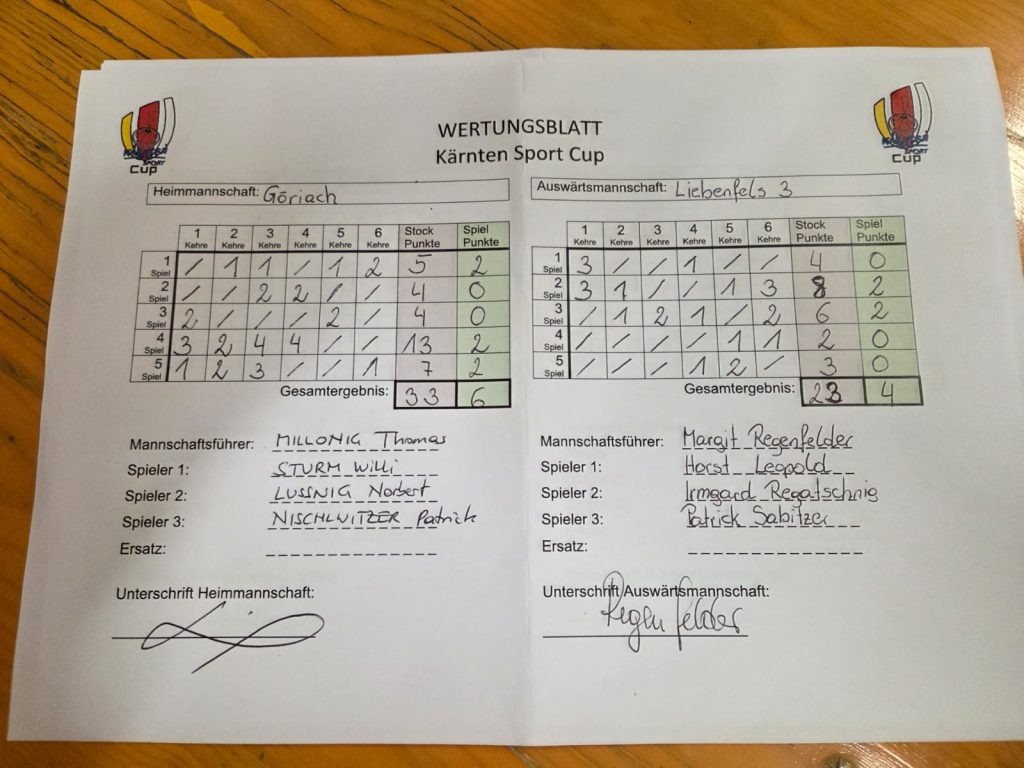 SPORT
Cup
SPORT
Cup
WERTUNGSBLATT
Kärnten Sport Cup
Heimmannschaft: Göriach
1 Kehre 2 Kehre 3 Kehre 4 Kehre 5 Kehre 6 Kehre Stock Punkte Spiel Punkte
1 Spiel / 1 1 / 1 2 5 2
2 Spiel / / 2 2 / / 4 0
3 Spiel 2 / / / 2 / 4 0
4 Spiel 3 2 4 4 / / 13 2
5 Spiel 1 2 3 / / 1 7 2
Gesamtergebnis: 33 6
Mannschaftsführer: MILLONIG Thomas
Spieler 1: STURM Willi
Spieler 2: LUSSNIG Norbert
Spieler 3: NISCHLWITZER Patrick
Ersatz:
Unterschrift Heimmannschaft:
Auswärtsmannschaft: Liebenfels 3
1 Kehre 2 Kehre 3 Kehre 4 Kehre 5 Kehre 6 Kehre Stock Punkte Spiel Punkte
1 Spiel 3 / / 1 / / 4 0
2 Spiel 3 1 / / 1 3 8 2
3 Spiel / 1 2 1 / 2 6 2
4 Spiel / / / / 1 1 2 0
5 Spiel / / / 1 2 / 3 0
Gesamtergebnis: 23 4
Mannschaftsführer: Margit Regenfelder
Spieler 1: Horst Leopold
Spieler 2: Irmgard Regatschnig
Spieler 3: Patrick Sabitzer
Ersatz:
Unterschrift Auswärtsmannschaft:
Regenfelder